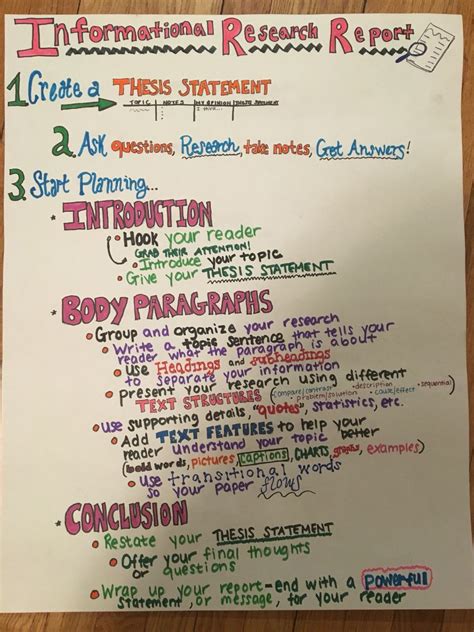 Informational Research Report
1. Create a THESIS STATEMENT
TOPIC NOTES MY OPINION THESIS STATEMENT
I think...
2. Ask questions, Research, take notes, Get Answers!
3. Start Planning...
* INTRODUCTION
• Hook your reader
GRAB THEIR ATTENTION!
• Introduce your topic
• Give your THESIS STATEMENT
* BODY PARAGRAPHS
• Group and organize your research
• Write a topic sentence that tells your
reader what the paragraph is about
• Use Headings and subheadings
to separate your information
• present your research using different
TEXT STRUCTURES (compare/contrast • description • sequential)
• problem/solution • cause/effect
• use supporting details, "quotes", statistics, etc.
• Add TEXT FEATURES to help your
reader understand your topic better
(bold words, pictures, captions, CHARTS, graphs, examples)
• Use transitional words
so your paper flows
* CONCLUSION
• Restate your THESIS STATEMENT
• Offer your final thoughts
or questions
• Wrap up your report-end with a powerful
statement, or message, for your reader